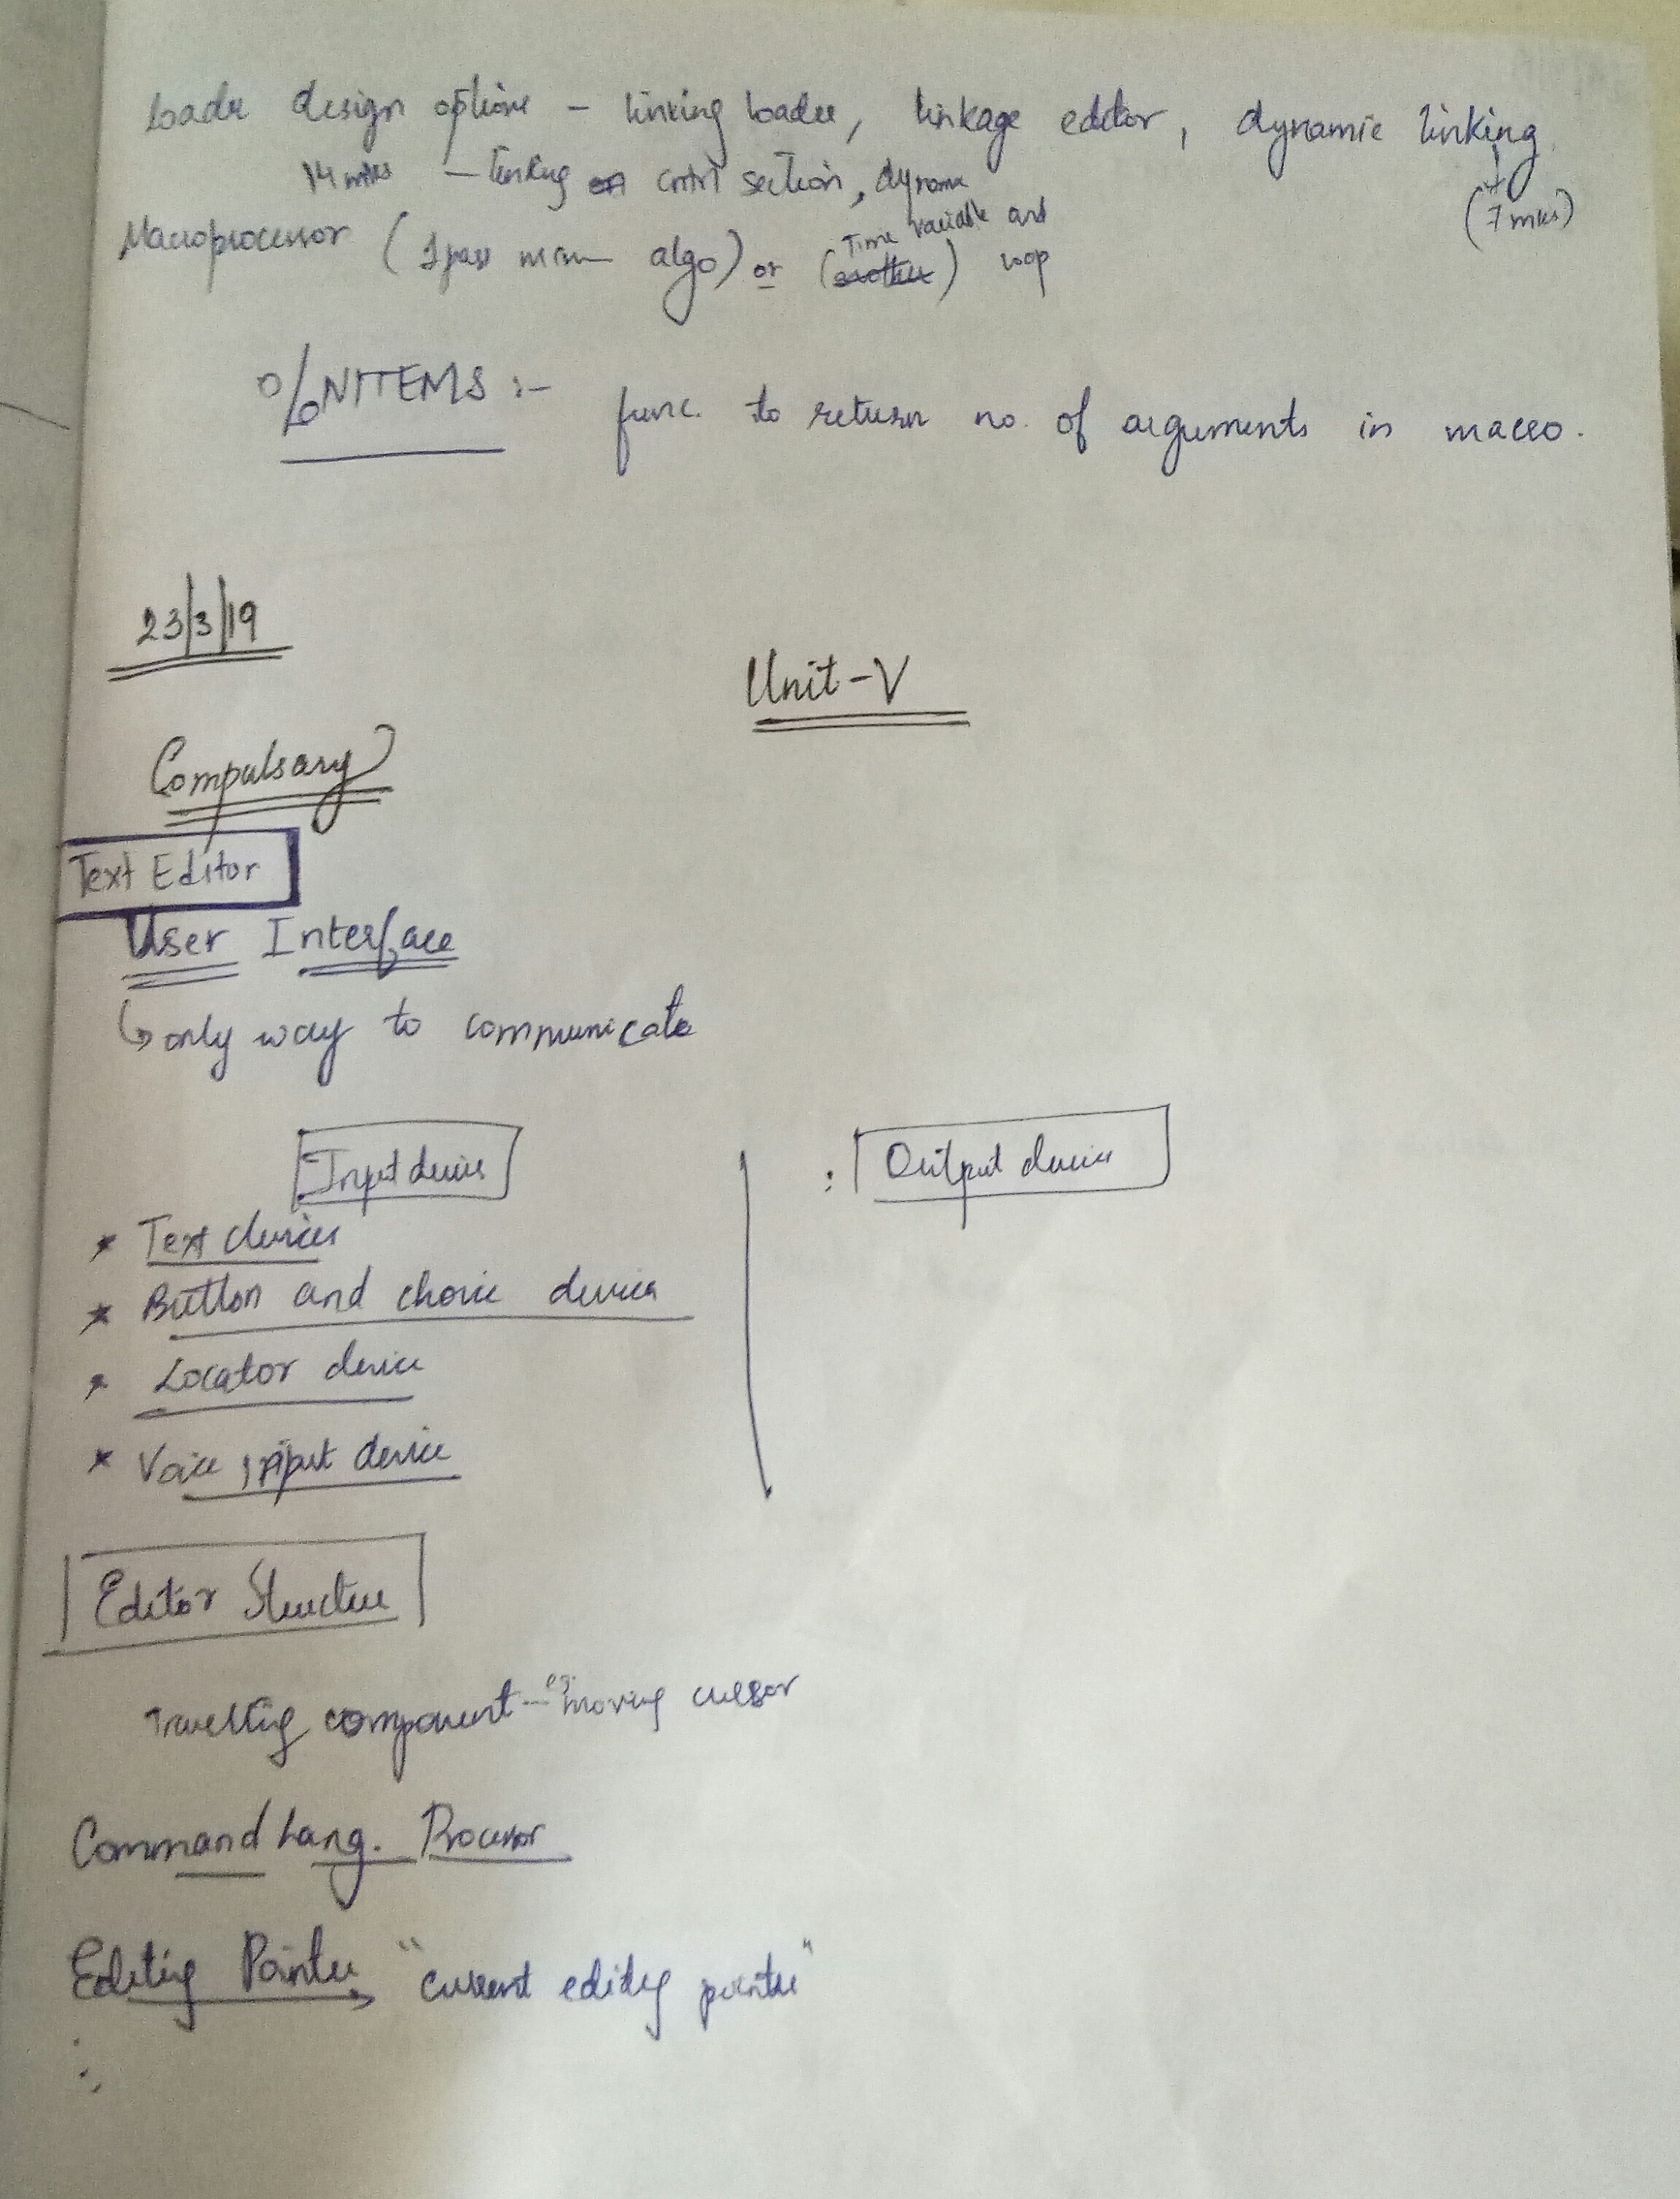 Loader design options - linking loader, linkage editor, dynamic linking
14 mrks - linking cntrl section, dynamc (7 mrks)
Macroprocessor (1 pass algo) or (Time variable and loop
%NITEMS :- func. to return no. of arguments in macro.
23/3/19
Unit-V
Compulsary
Text Editor
User Interface
↳ only way to communicate
Input device : Output device
* Text devices
* Button and choice devices
* Locator device
* Voice input device
Editor Structure
Travelling component - eg. moving cursor
Command Lang. Processor
Editing Pointer → "current editing pointer"